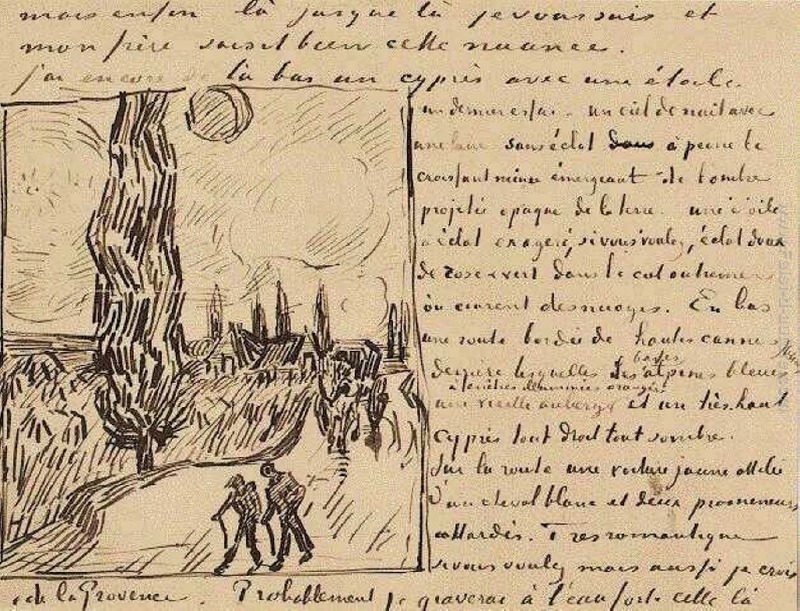 mais enfin là jusque là je vous suis et
mon frère saisit bien cette nuance.
J'ai encore de là bas un cyprès avec une étoile
un dernier essai – un ciel de nuit avec
une lune sans éclat dans à peine le
croissant mince émergeant de l'ombre
projetée opaque de la terre. une étoile
à éclat exagéré, si vous voulez, éclat doux
de rose & vert dans le ciel outremer
où courent des nuages. En bas
une route bordée de hautes cannes
derrière lesquelles les basses alpines bleues
à fenêtres illuminées orangées
une vieille auberge et un très haut
cyprès tout droit tout sombre.
Sur la route une voiture jaune attelée
d'un cheval blanc et deux promeneurs
attardés. Très romantique
si vous voulez mais aussi je crois
de la Provence. Probablement je graverai à l'eau forte celle là